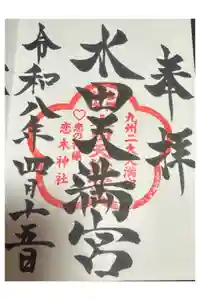 奉拝
九州二大天満宮
水田天満宮
恋の神様
恋木神社
令和八年四月十五日